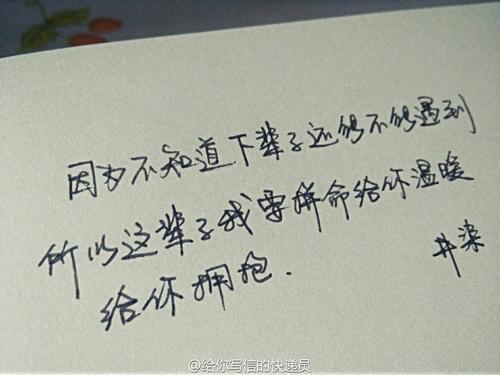 因为不知道下辈子还能不能遇到
所以这辈子我要拼命给你温暖
给你拥抱.
井染
@给你写信的快递员